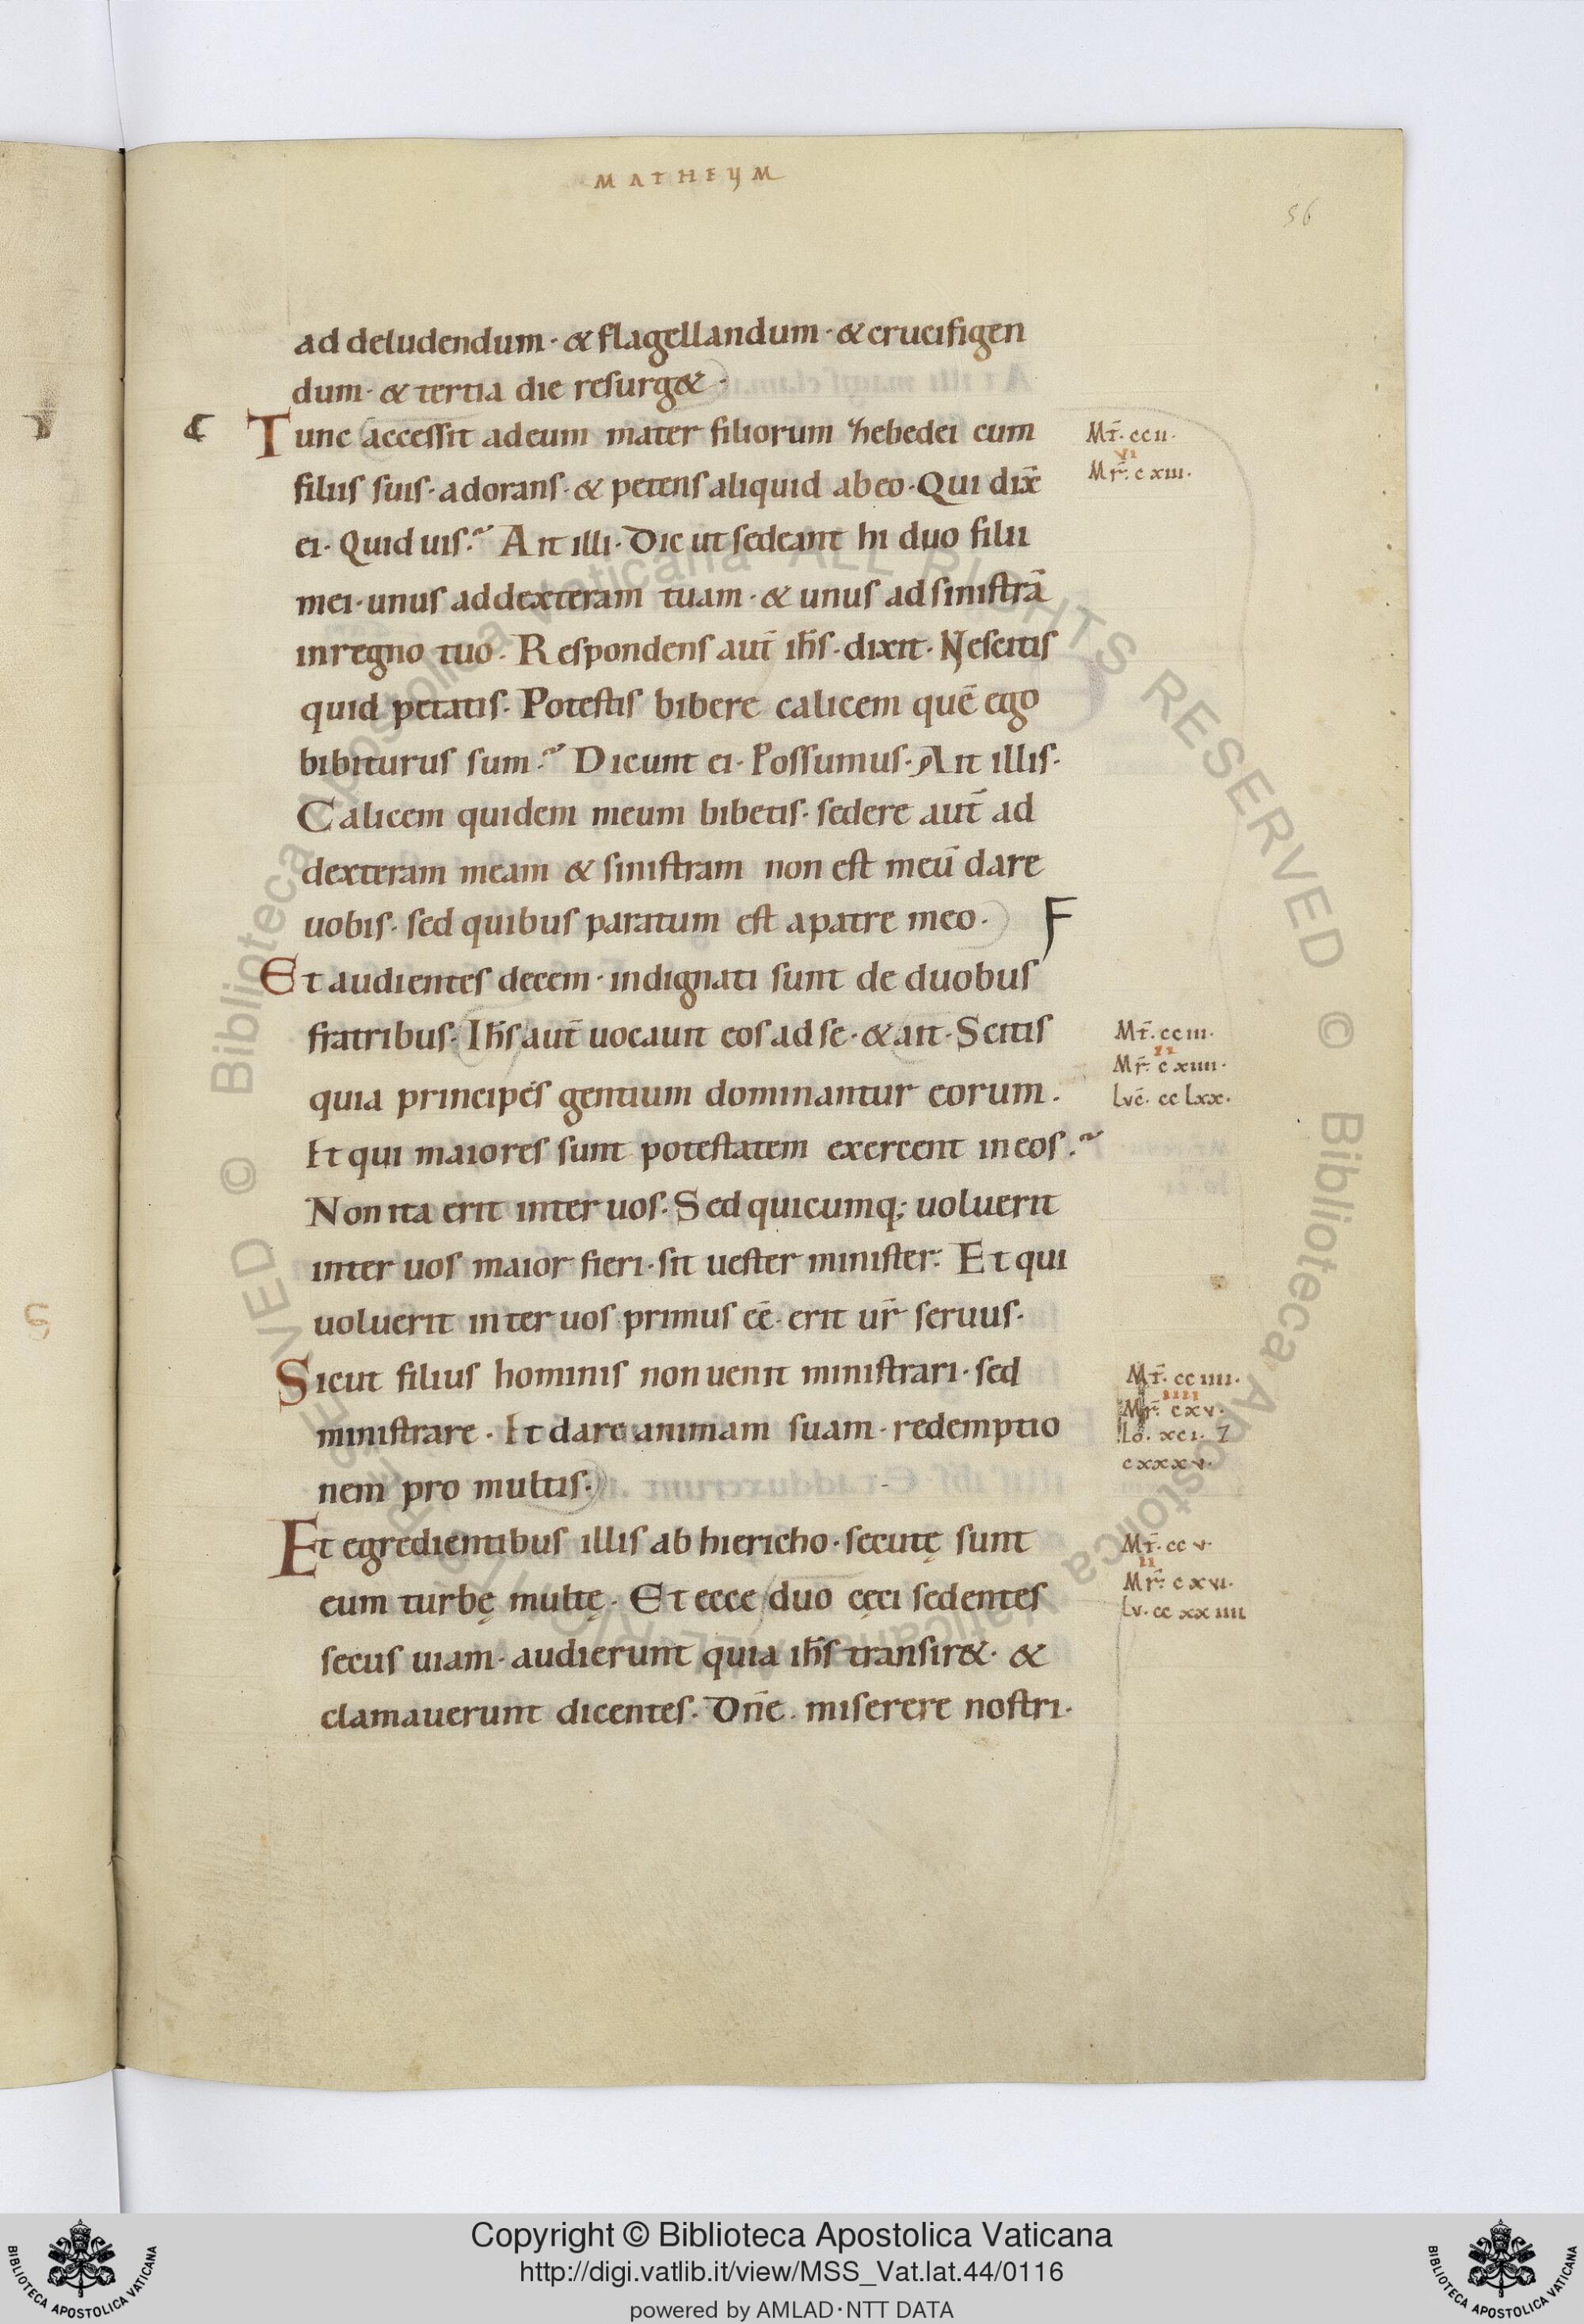 MATHEUM
56
ad deludendum· & flagellandum· & crucifigen
dum· & tertia die resurg&·
Tunc accessit ad eum mater filiorum zebedei cum
filiis suis· adorans· & petens aliquid ab eo· Qui dix̄
ei· Quid uis? Ait illi· Dic ut sedeant hi duo filii
mei· unus ad dexteram tuam· & unus ad sinistrā
in regno tuo· Respondens aut̄ ih̄s· dixit· Nescitis
quid petatis· Potestis bibere calicem quē ego
bibiturus sum? Dicunt ei· Possumus· Ait illis·
Calicem quidem meum bibetis· sedere aut̄ ad
dexteram meam & sinistram non est meū dare
uobis· sed quibus paratum est a patre meo· F
Et audientes decem· indignati sunt de duobus
fratribus· Ih̄s aut̄ uocauit eos ad se· & ait· Scitis
quia principes gentium dominantur eorum·
Et qui maiores sunt potestatem exercent in eos?
Non ita erit inter uos· Sed quicumq; uoluerit
inter uos maior fieri· sit uester minister· Et qui
uoluerit inter uos primus eē· erit ur̄ seruus·
Sicut filius hominis non uenit ministrari· sed
ministrare· Et dare animam suam· redemptio
nem pro multis·
Et egredientibus illis ab hiericho· secutę sunt
eum turbę multę· Et ecce duo cęci sedentes
secus uiam· audierunt quia ih̄s transir&· &
clamauerunt dicentes· Dn̄e· miserere nostri·
Mt̄· ccii·
vi
Mr̄· cxiii·
Mt̄· cciii·
ii
Mr̄· cxiiii·
Luc̄· cclxx·
Mt̄· cciiii·
iiii
Mr̄· cxv·
Io· xci· 7
cxxxv·
Mt̄· ccv·
ii
Mr̄· cxvi·
Lu· ccxxiiii
© Biblioteca Apostolica Vaticana ALL RIGHTS RESERVED © Biblioteca Apostolica Vaticana ALL RIGHTS RESERVED
Copyright © Biblioteca Apostolica Vaticana
http://digi.vatlib.it/view/MSS_Vat.lat.44/0116
powered by AMLAD·NTT DATA
BIBLIOTECA APOSTOLICA VATICANA
BIBLIOTECA APOSTOLICA VATICANA